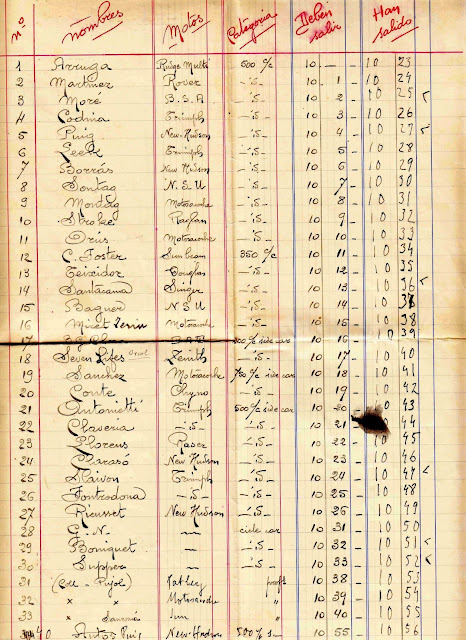 nº nombres Motos Categoria Deben salir Han salido
1 Arruga Rudge Multi 500 c/c 10 — 10 23
2 Martinez Rover —is— 10 1 10 24
3 Moré B.S.A —is— 10 2 10 25
4 Codina Triumph —is— 10 3 10 26
5 Puig New-Hudson —is— 10 4 10 27
6 Triumph —is— 10 5 10 28
7 Borras New Hudson —is— 10 6 10 29
8 Sontag N.S.U —is— 10 7 10 30
9 Montdag Motosacoche —is— 10 8 10 31
10 Stroke —is— 10 9 10 32
11 Orus Motosacoche —is— 10 10 10 33
12 C. Foster Sunbeam 350 c/c 10 11 10 34
13 Teixidor Douglas —is— 10 12 10 35
14 Santacana Singer —is— 10 13 10 36
15 Baguer N S U —is— 10 14 10
16 Motosacoche —is— 10 15 10 38
17 side car 10 16 10 39
18 Seven Lifes Zenith —is— 10 17 10 40
19 Sanchez Motosacoche 750 c/c side car 10 18 10 41
20 Conte —is— 10 19 10 42
21 Antonietti Triumph 500 c/c side car 10 20 10 43
22 Claveria —is— —is— 10 21 10 44
23 Llorens —is— 10 22 10 45
24 Charasó New Hudson —is— 10 23 10 46
25 Triumph —is— 10 24 10 47
26 Fontrodona —is— —is— 10 25 10 48
27 Rieusset New Hudson —is— 10 26 10 49
28 G.N. — cicle car 10 31 10 50
29 Bouquet — —is— 10 32 10 51
30 — —is— 10 33 10 52
31 (Coll - Pujol) 10 38 10 53
32 " " Motosacoche " 10 39 10 54
33 " " 10 40 10 55
40 Puig New-Hudson 500 % s— 10 55 10 56